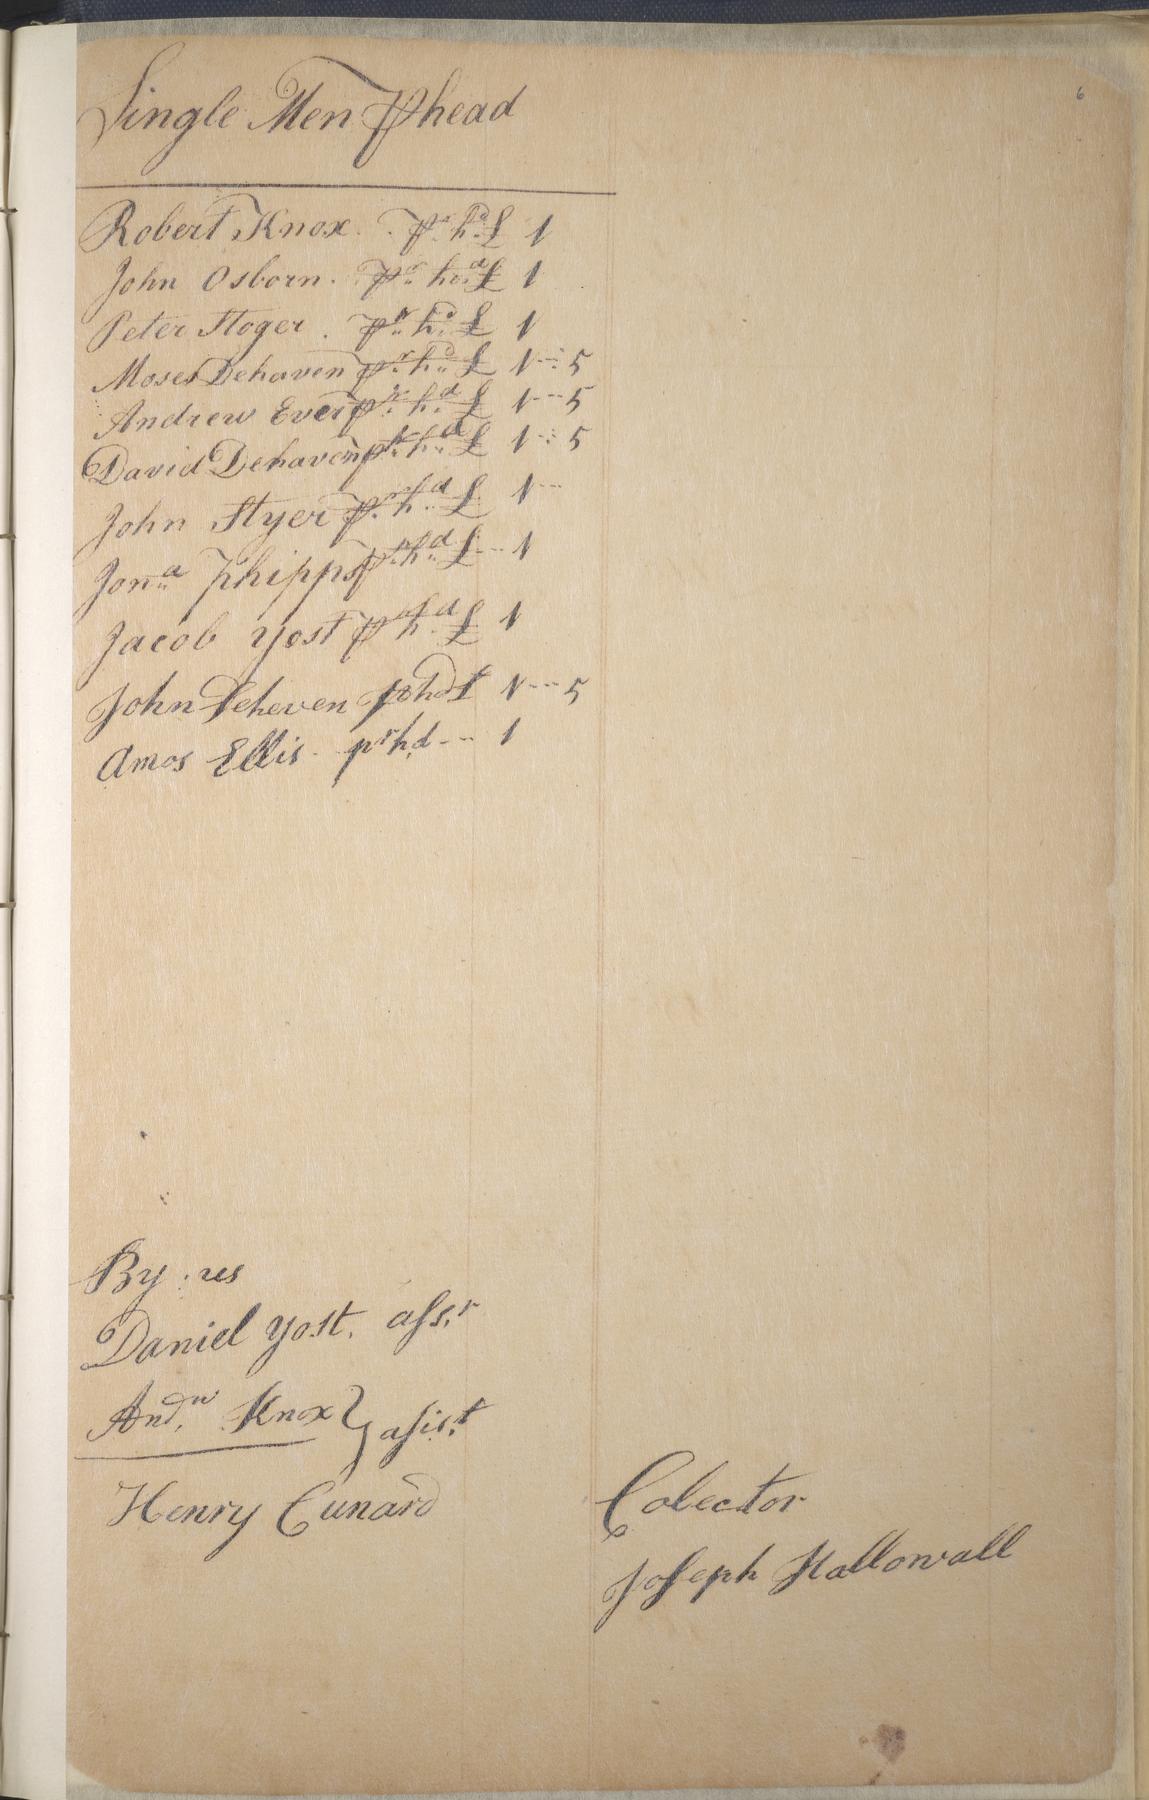 6
Single Men ⅌ head
Robert Knox . . pr. hd. £ 1
John Osborn . pr. hd. £ 1
Peter Stoger . pr. hd. £ 1
Moses Dehaven pr. hd. £ 1 --- 5
Andrew Ever pr. hd. £ 1 --- 5
David Dehaven pr. hd. £ 1 --- 5
John Styer pr. hd. £ 1 ---
Jona. Phipps pr. hd. £ --- 1
Jacob Yost pr. hd. £ 1
John Deheven pr hd £ 1 --- 5
Amos Ellis . pr hd --- 1
By us
Daniel Yost . assr
Andw. Knox } asist
Henry Cunard
Colector
Joseph Hallowall